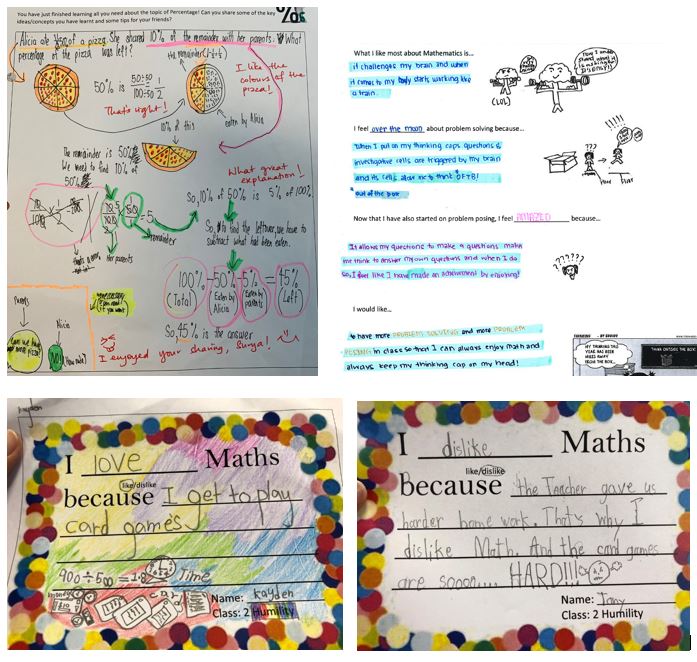 You have just finished learning all you need about the topic of Percentage! Can you share some of the key
ideas/concepts you have learnt and some tips for your friends?
Alicia ate 50% of a pizza. She shared 10% of the remainder with her parents. What
percentage of the pizza was left?
the remainder
50% is 50÷50/100÷50 1/2
I like the
colours of the
pizza!
That's right!
10% of this
eaten by Alicia
The remainder is 50%
We need to find 10% of
50%
What great
explanation!
So, 10% of 50% is 5% of 100%.
=5
remainder
Her parents
So, to find the leftover, we have to
subtract what had been eaten.
100% - 50% - 5% = 45%
(Total) (Eaten by Alicia) (Eaten by parents) (Left)
So, 45% is the answer
I enjoyed your sharing, Surya!
Parents
Alicia
NO!
What I like most about Mathematics is...
it challenges my brain and when
it comes to my body starts working like
a train.
(LOL)
I feel over the moon about problem solving because...
When I put on my thinking caps, questions &
investigative cells are triggered by my brain
and its cells allow me to think OFTB!
out of the box
???
Now that I have also started on problem posing, I feel AMAZED because...
It allows my questions to make a questions make
me think to answer my own questions and when I do
so, I feel like I have made an achievement by enjoying!
??????
I would like...
to have more PROBLEM SOLVING and more PROBLEM
POSING in class so that I can always enjoy math and
always keep my thinking cap on my head!
MY THINKING THIS
YEAR HAS BEEN
MILES AWAY
FROM THE BOX
THINK OUTSIDE THE BOX
Kayden
I love Maths
like/dislike
because I get to play
card games
900÷500=1.8 Time
Name: Kayden
Class: 2 Humility
I dislike Maths
like/dislike
because the Teacher gave us
harder home work. That's why I
dislike Math. And the card games
are sooon.... HARD!!!
Name: Tony
Class: 2 Humility